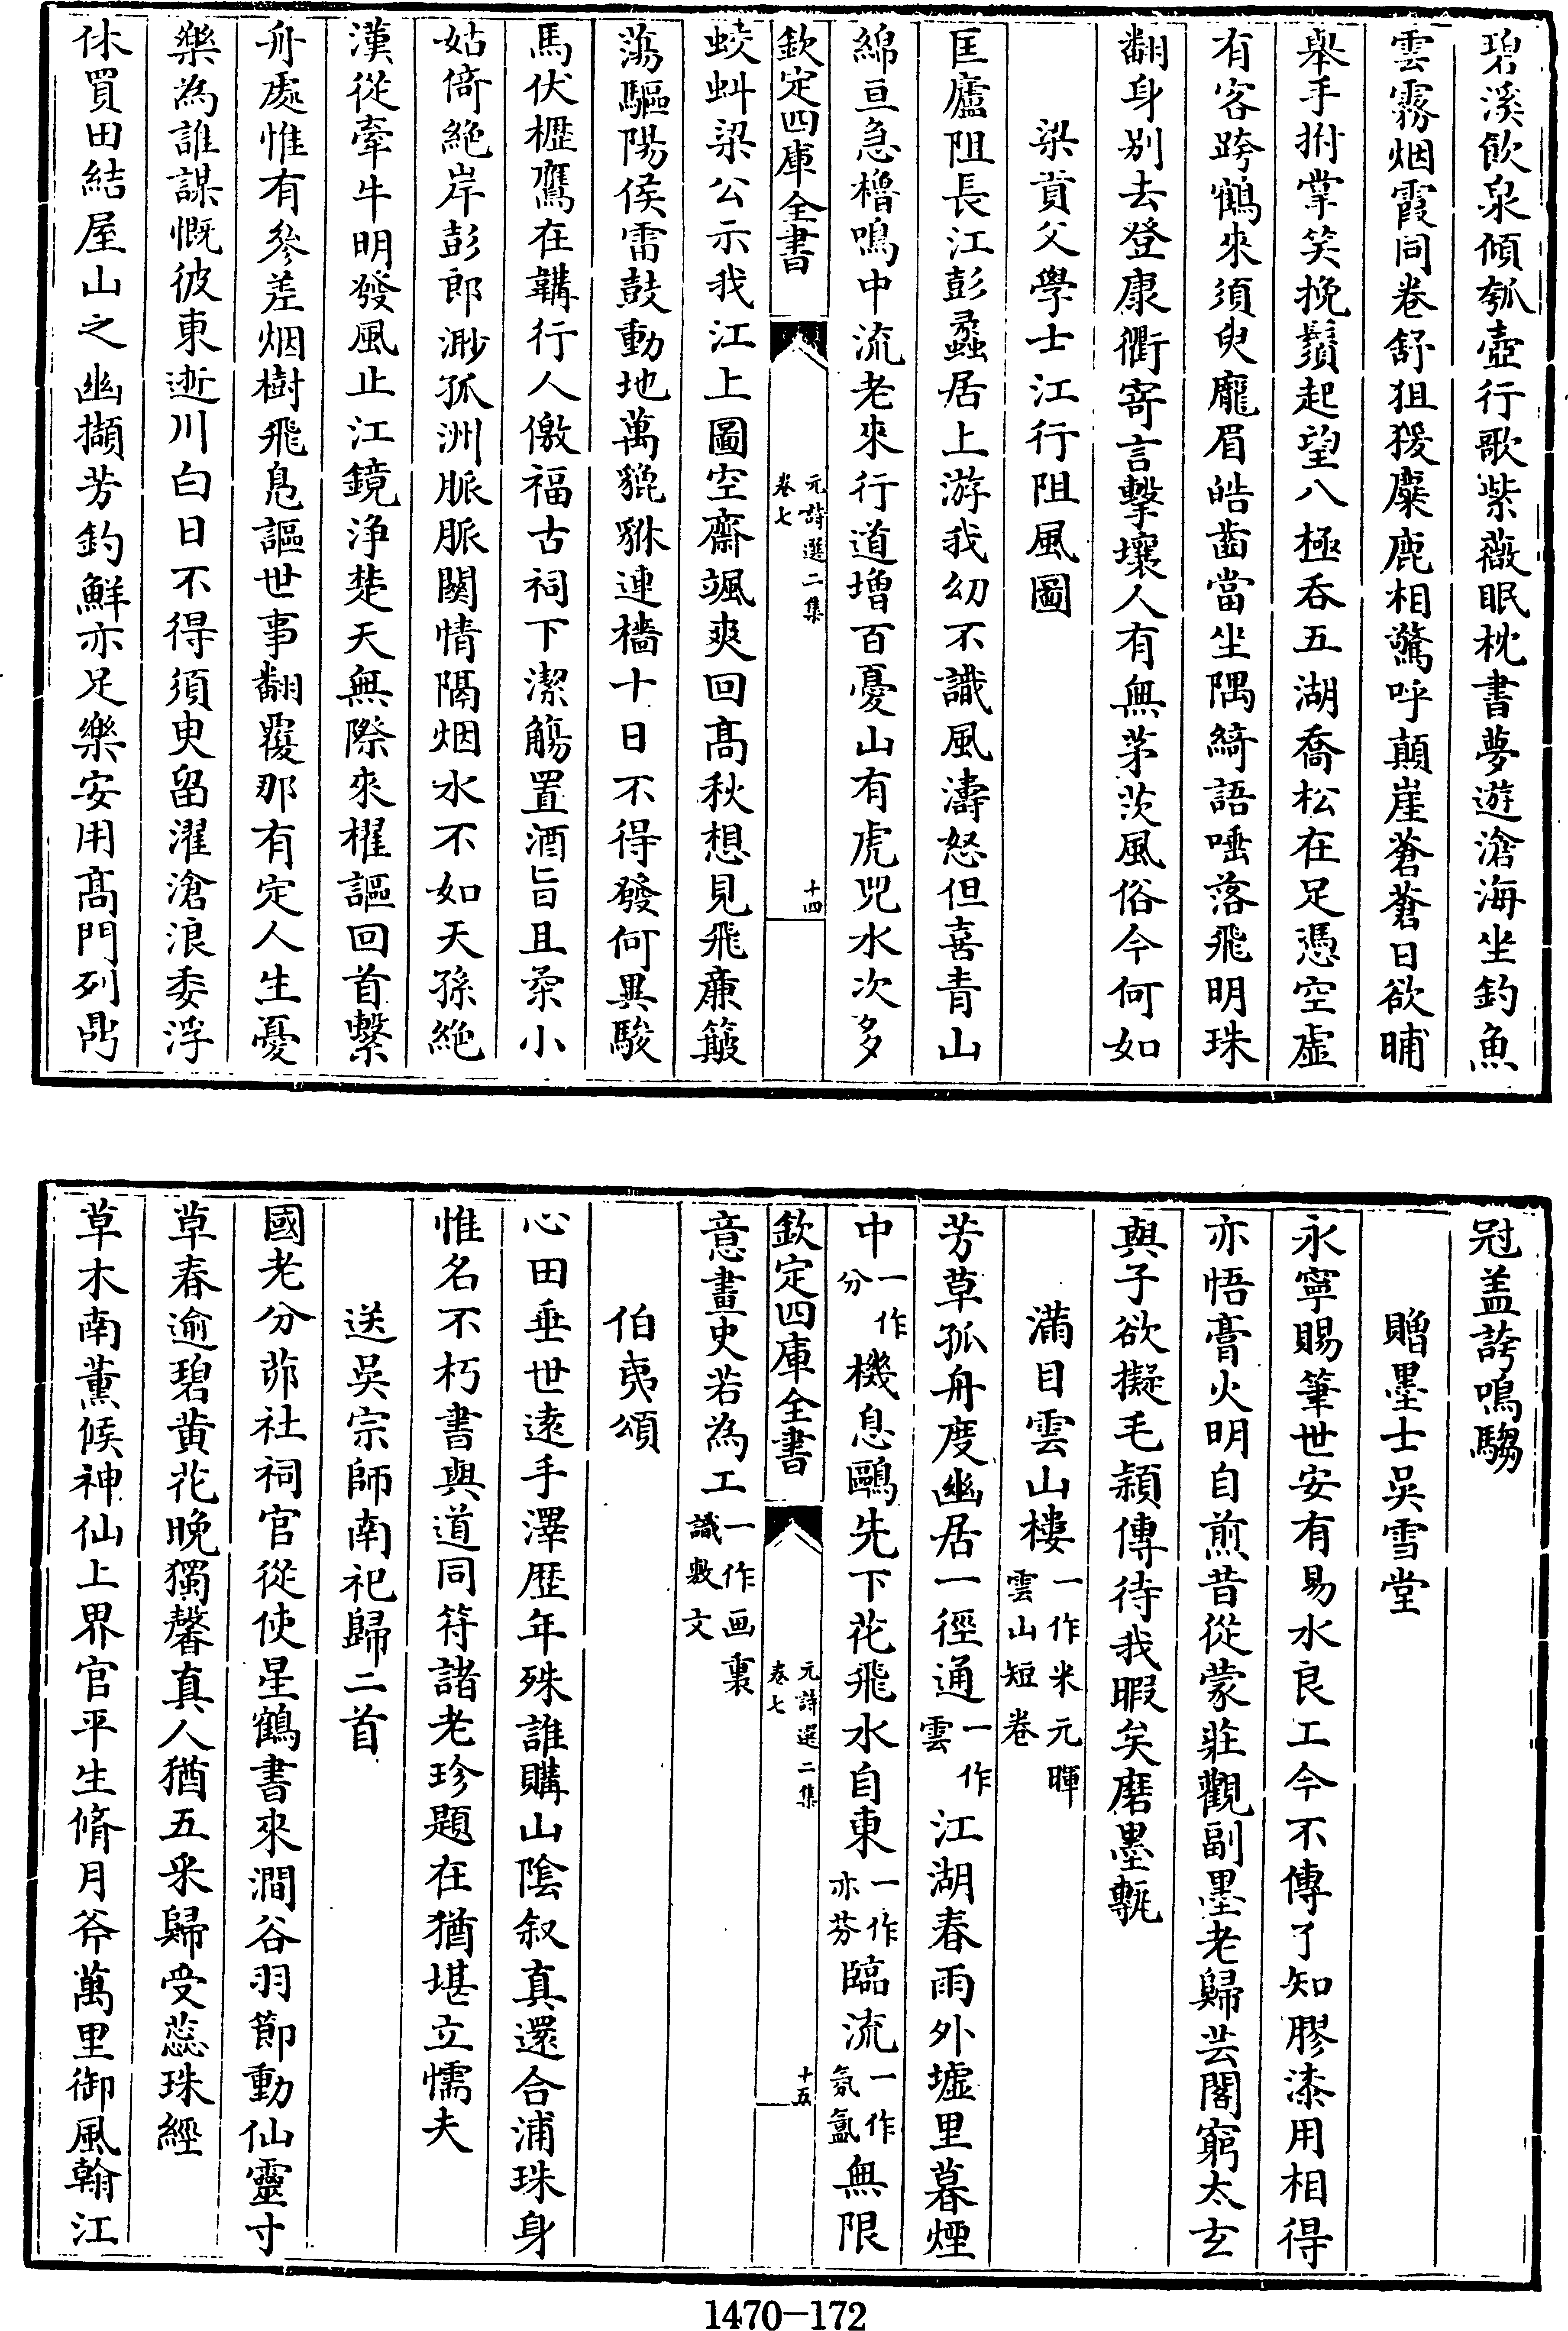 碧溪飲泉傾瓠壺行歌紫薇眠枕書夢遊滄海坐釣魚
雲霧烟霞同卷舒狙猨麋鹿相驚呼顛崖蒼蒼日欲晡
舉手拊掌笑挽鬚起望八極呑五湖喬松在足憑空虛
有客跨鶴來須臾龐眉皓齒當坐隅綺語唾落飛明珠
翻身别去登康衢寄言擊壤人有無茅茨風俗今何如
梁貢父學士江行阻風圖
匡廬阻長江彭蠡居上游我幼不識風濤怒但喜青山
綿亘急櫓鳴中流老來行道增百憂山有虎兕水次多
欽定四庫全書
元詩選二集
卷七
十四
蛟虯梁公示我江上圖空齋颯爽回髙秋想見飛廉簸
蕩驅陽侯雷鼓動地萬貔貅連檣十日不得發何異駿
馬伏櫪鷹在韝行人儌福古祠下潔觴置酒旨且柔小
姑倚絶岸彭郎渺孤洲脈脈闗情隔烟水不如天孫絶
漢從牽牛明發風止江鏡浄楚天無際來櫂謳回首繫
舟處惟有參差烟樹飛鳬謳世事翻覆那有定人生憂
樂為誰謀慨彼東逝川白日不得須臾留濯滄浪委浮
休買田結屋山之幽擷芳釣鮮亦足樂安用髙門列鼎
冠盖誇鳴騶
贈墨士吳雪堂
永寧賜筆世安有易水良工今不傳了知膠漆用相得
亦悟膏火明自煎昔從蒙莊觀副墨老歸芸閣窮太玄
與子欲擬毛穎傳待我暇矣磨墨甎
滿目雲山樓一作米元暉雲山短卷
芳草孤舟度幽居一徑通一作雲江湖春雨外墟里暮煙
中一作分機息鷗先下花飛水自東一作亦芬臨流一作氛氳無限
欽定四庫全書
元詩選二集
卷七
十五
意畫史若為工一作画裏識敷文
伯夷頌
心田垂世逺手澤歴年殊誰購山陰叙真還合浦珠身
惟名不朽書與道同符諸老珍題在猶堪立懦夫
送吳宗師南祀歸二首
國老分茆社祠官從使星鶴書來澗谷羽節動仙靈寸
草春逾碧黄花晚獨馨真人猶五采歸受蕊珠經
草木南薰候神仙上界官平生脩月斧萬里御風翰江
1470-172